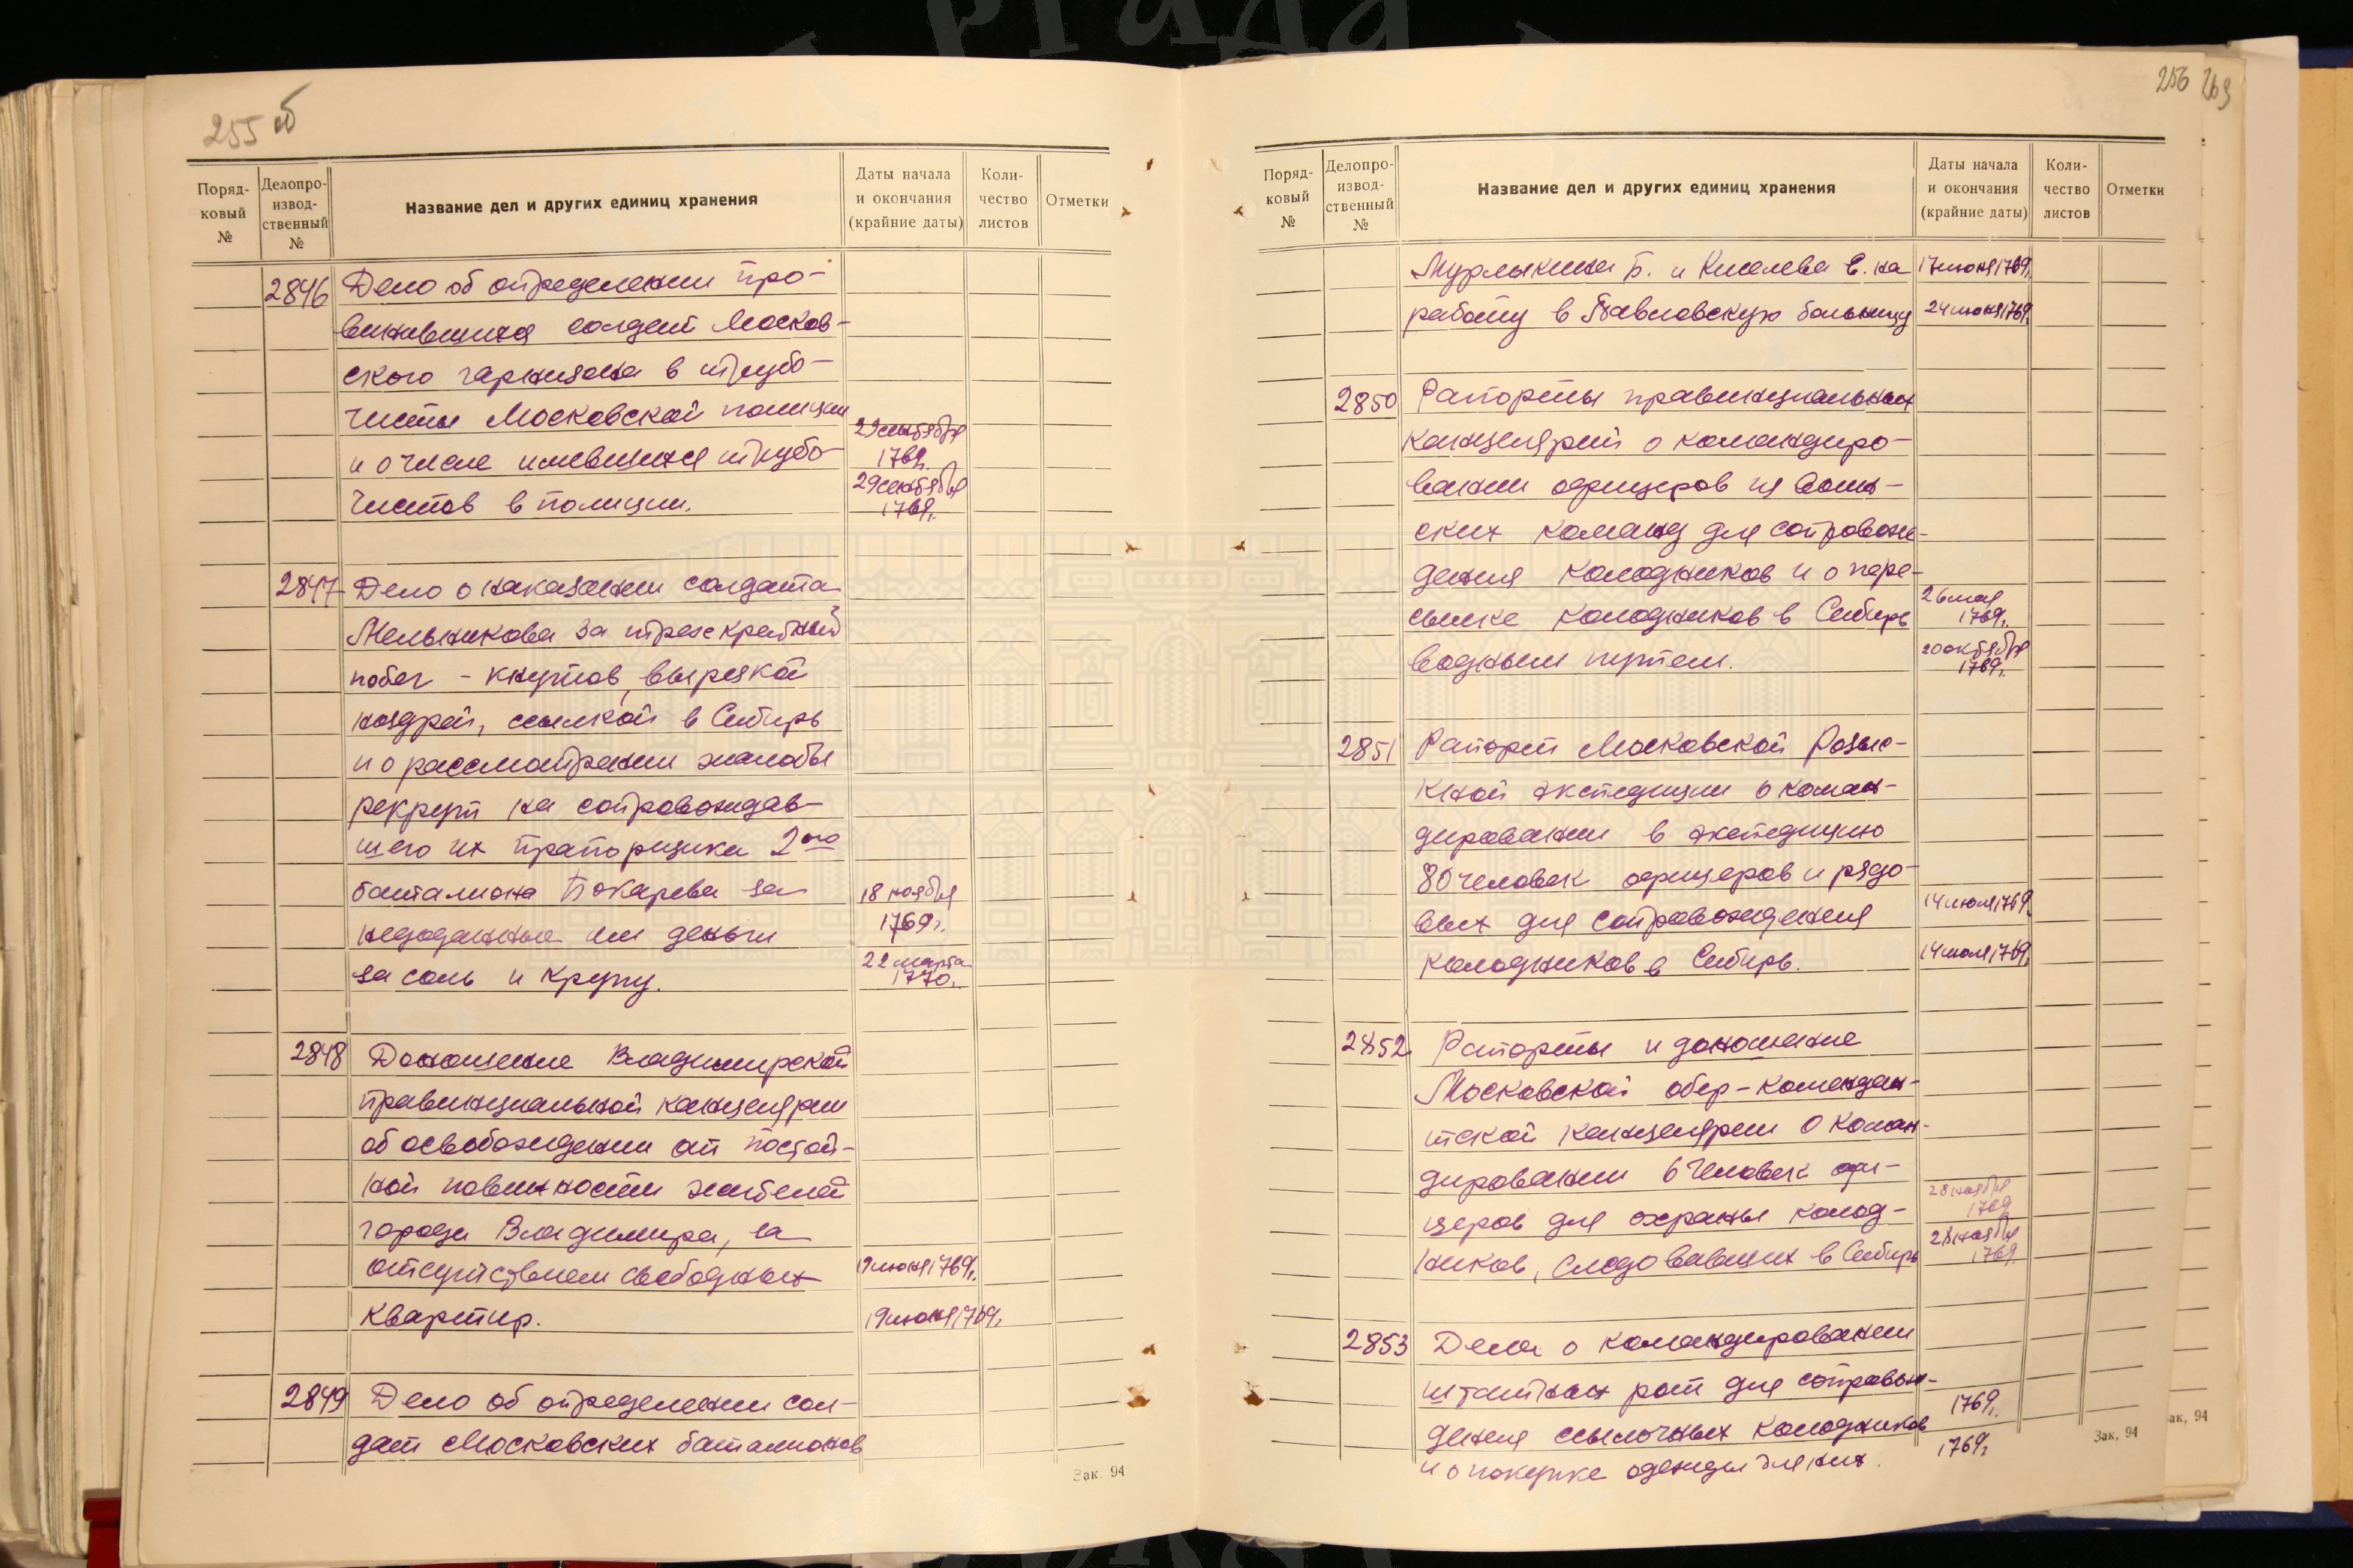 255 об
Поряд-
ковый
№
Делопро-
извод-
ственный
№
Название дел и других единиц хранения
Даты начала
и окончания
(крайние даты)
Коли-
чество
листов
Отметки
2846 Дело об определении про-
винившихся солдат Москов-
ского гарнизона в трубо-
чисты Московской полиции
и о числе имевшихся трубо-
чистов в полиции.
29 сентября
1769г.
29 сентября
1769г.
2847 Дело о наказании солдата
Мельникова за троекратный
побег - кнутов, вырезкой
ноздрей, ссылкой в Сибирь
и о рассмотрении жалобы
рекрут на сопровождав-
шего их прапорщика 2ого
баталиона Бокарева за
недоданные им деньги
за соль и крупу.
18 ноября
1769г.
22 марта
1770г.
2848 Доношение Владимирской
провинциальной канцелярии
об освобождении от постой-
ной повинности жителей
города Владимира, за
отсутствием свободных
квартир.
19 июня 1769г.
19 июня 1769г.
2849 Дело об определении сол-
дат Московских баталионов
Зак. 94
256 263
Поряд-
ковый
№
Делопро-
извод-
ственный
№
Название дел и других единиц хранения
Даты начала
и окончания
(крайние даты)
Коли-
чество
листов
Отметки
Мурлыкина Б. и Киселева Е. на
работу в Павловскую больницу
17 июня 1769г.
24 июня 1769г.
2850 Рапорты провинциальных
канцелярий о командиро-
вании офицеров из воин-
ских команд для сопровож-
дения колодников и о пере-
сылке колодников в Сибирь
водным путем.
26 мая
1769г.
20 октября
1769г.
2851 Рапорт Московской Розыс-
кной экспедиции о коман-
дировании в экспедицию
80 человек офицеров и рядо-
вых для сопровождения
колодников в Сибирь.
14 июля 1769г.
14 июля 1769г.
2852 Рапорты и доношение
Московской обер-комендан-
тской канцелярии о коман-
дировании 6 человек офи-
церов для охраны колод-
ников, следовавших в Сибирь
28 ноября
1769
28 ноября
1769
2853 Дела о командировании
штатных рот для сопровож-
дения ссылочных колодников
и о покупке одежды для них.
1769г.
1769г.
Зак. 94
ак, 94